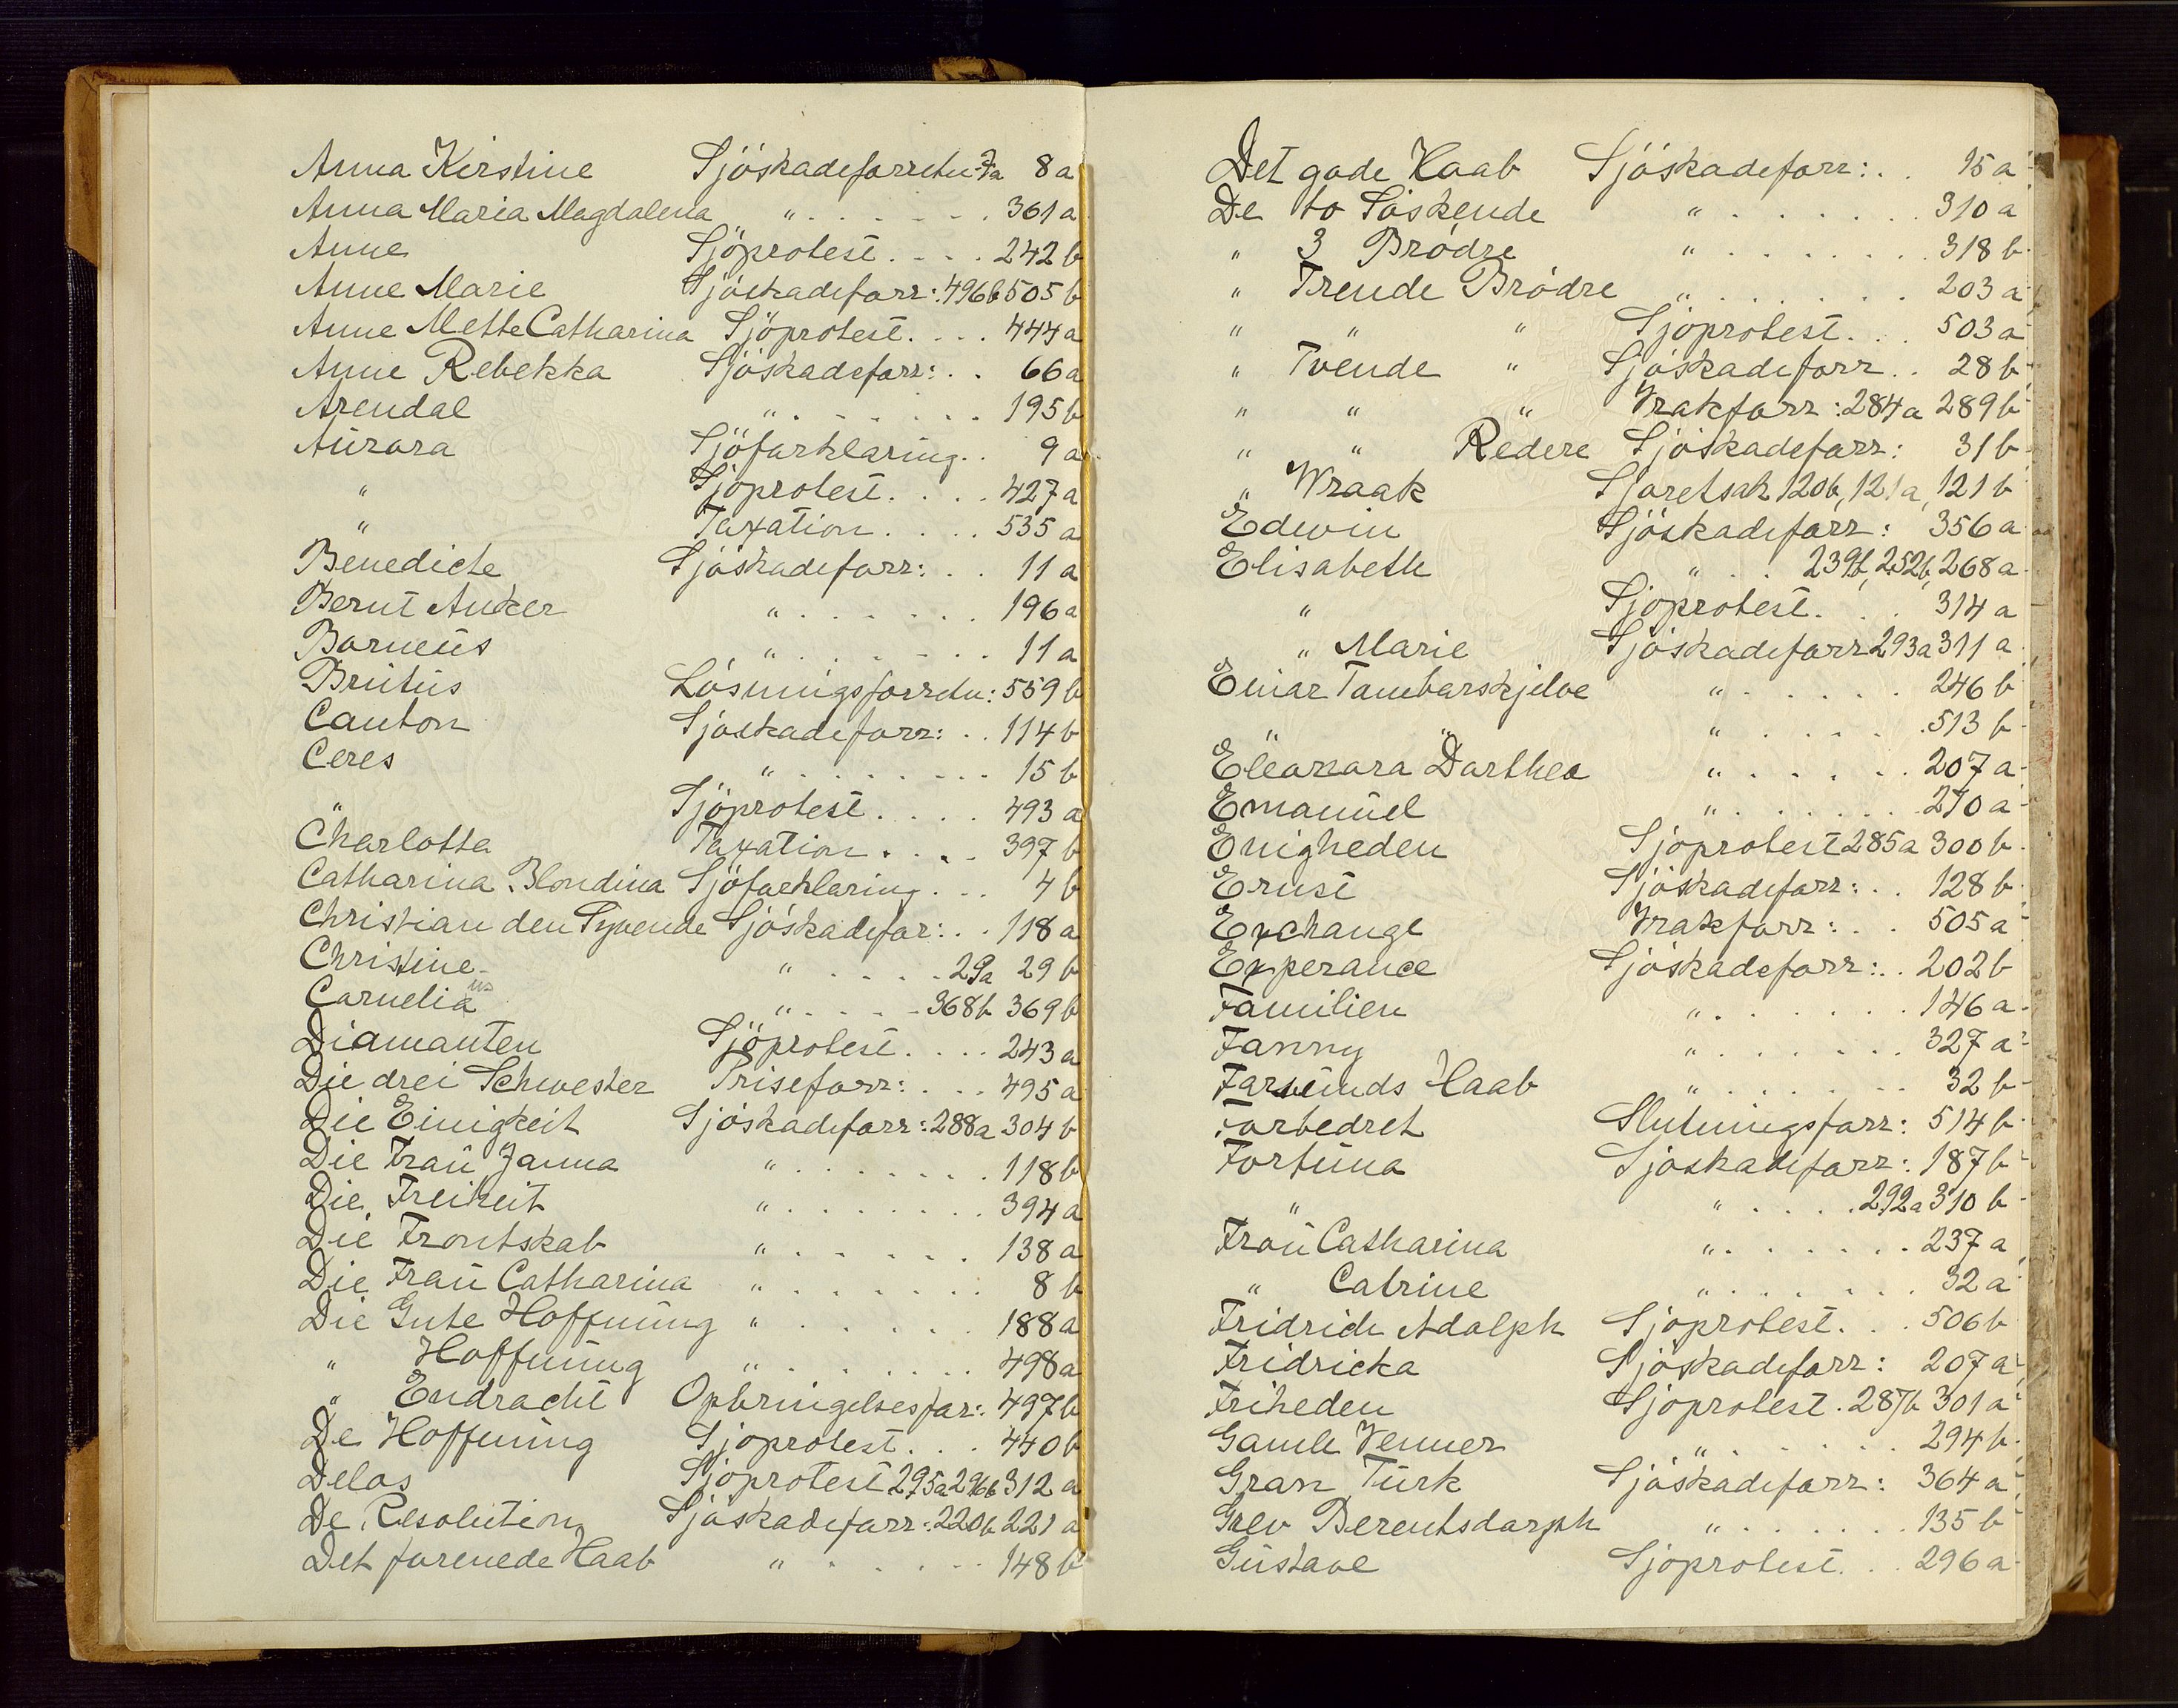 Anna Kirstine Sjöskadeforretn 7a 8a
Anna Maria Magdalena " . . . . . . 361a
Anne Sjöprotest . . . . 242b
Anne Marie Sjöskadeforr: 496b 505b
Anne Mette Catharina Sjöprotest . . . . 444a
Anne Rebekka Sjöskadeforr: . . 66a
Arendal " . . . . . . . 195b
Aurora Sjöforklaring . . 9a
" Sjöprotest . . . . 427a
" Taxation . . . . 535a
Benedicte Sjöskadeforr: . . 11a
Bernt Anker " . . . . . . 196a
Borneus " . . . . . . 11a
Brutus Lösningsforretn: 559b
Canton Sjöskadeforr: . . 114b
Ceres " . . . . . . . . 15b
" Sjöprotest . . . . . 493a
Charlotta Taxation . . . . 397b
Catharina Blondina Sjöforklaring . . . 4b
Christian den Syvende Sjöskadefor: . . 118a
Christine " . . . . . 29a 29b
Cornelia us " . . . . 368b 369b
Diamanten Sjöprotest . . . . 243a
Die drei Schwester Priseforr: . . . 495a
Die Einigkeit Sjöskadeforr: 288a 304b
Die Frau Janna " . . . . . . . . 118b
Die Freiheit " . . . . . . . . 394a
Die Frontskab " . . . . . . 138a
Die Frau Catharina " . . . . . . . 8b
Die Gute Hoffnung " . . . . . . 188a
" Hoffnung " . . . . . . . 498a
" Endracht Opbringelsesfor: 497b
De Hoffnung Sjöprotest . . . 440b
Delos Sjöprotest 295a 296b 312a
De Resolution Sjöskadeforr: 220b 221a
Det forenede Haab " . . . . . 148b
Det gode Haab Sjöskadeforr: . . 15a
De to Söskende " . . . . . . . 310a
" 3 Brödre " . . . . . . . . 318b
" Trende Brödre " . . . . . . . 203a
" " " Sjöprotest . . . 503a
" Tvende " Sjöskadeforr . . 28b
" " " Vrakforr: 284a 289b
" " Redere Sjöskadeforr: 31b
" Wraak Sjöretsak 120b, 121a, 121b
Edwin Sjöskadeforr: 356a
Elisabeth " . . . 239b, 252b, 268a
" Sjöprotest . . . 314a
" Marie Sjöskadeforr 293a 311a
Einar Tambarskjelve " . . . . . . 246b
" " " . . . . . 513b
Eleonora Dorthea " . . . . . . 207a
Emanuel " . . . . . . . 270a
Enigheden Sjöprotest 285a 300b
Ernst Sjöskadeforr: . . 128b
Exchange Vrakforr: . . . 505a
Experance Sjöskadeforr: . . 202b
Familien " . . . . . . . 146a
Fanny " . . . . . . . 327a
Farsunds Haab " . . . . . . . 32b
Forbedret Slutningsforr: 514b
Fortuna Sjöskadeforr: 187b
" " . . . . . 292a 310b
Frau Catharina " . . . . . . . 237a
" Catrine " . . . . . . . 32a
Fridrich Adolph Sjöprotest . . . 506b
Fridricka Sjöskadeforr: 207a
Friheden Sjöprotest . 287b 301a
Gamle Venner " . . . . . . 294b
Gran Turk Sjöskadeforr: 364a
Grev Berentsdorph " . . . . . . . 135b
Gustave Sjöprotest . . . 296a